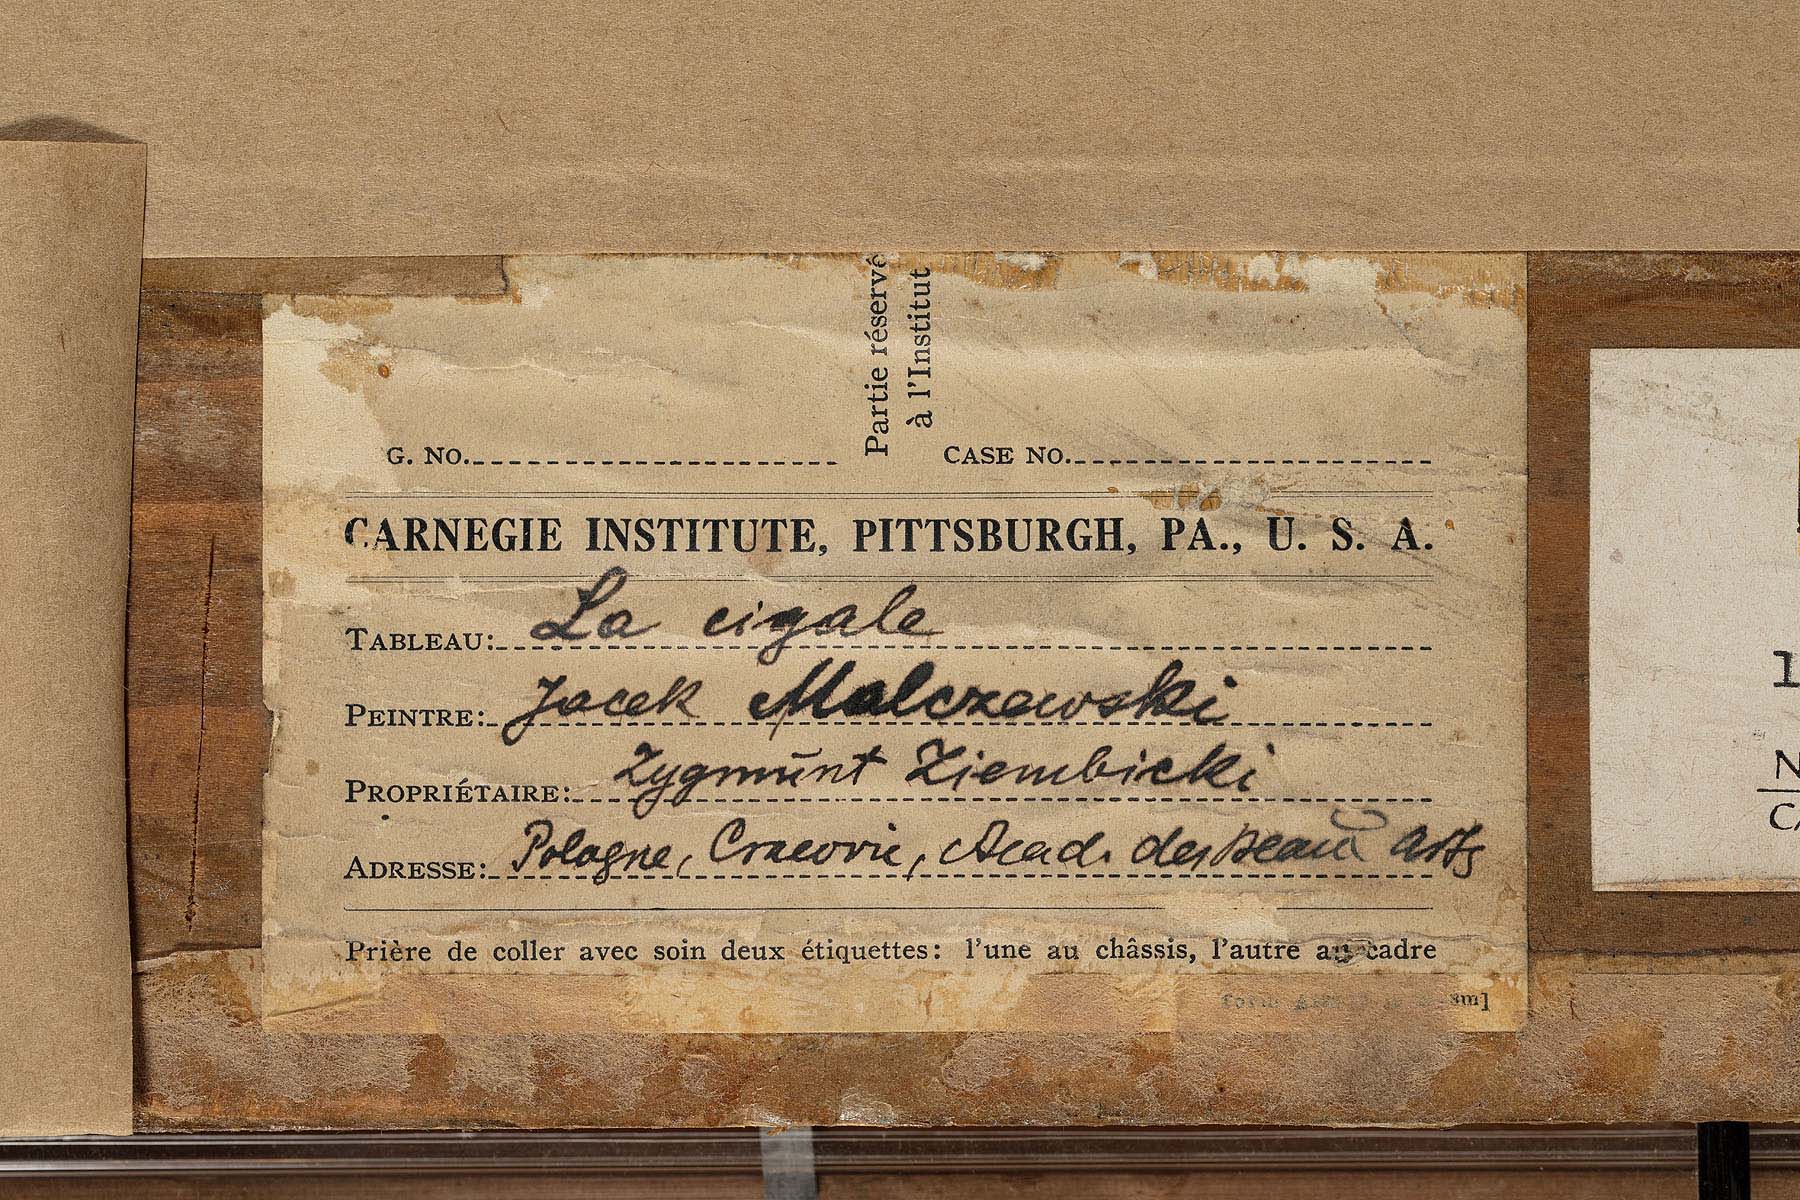 Partie réservé
à l'Institut
G. NO.
CASE NO.
CARNEGIE INSTITUTE, PITTSBURGH, PA., U. S. A.
TABLEAU: La cigale
PEINTRE: Jacek Malczewski
PROPRIÉTAIRE: Zygmunt Ziembicki
ADRESSE: Pologne, Cracovie, Acad. des Beaux Arts
Prière de coller avec soin deux étiquettes: l'une au châssis, l'autre au cadre
8m]
1
N
CA